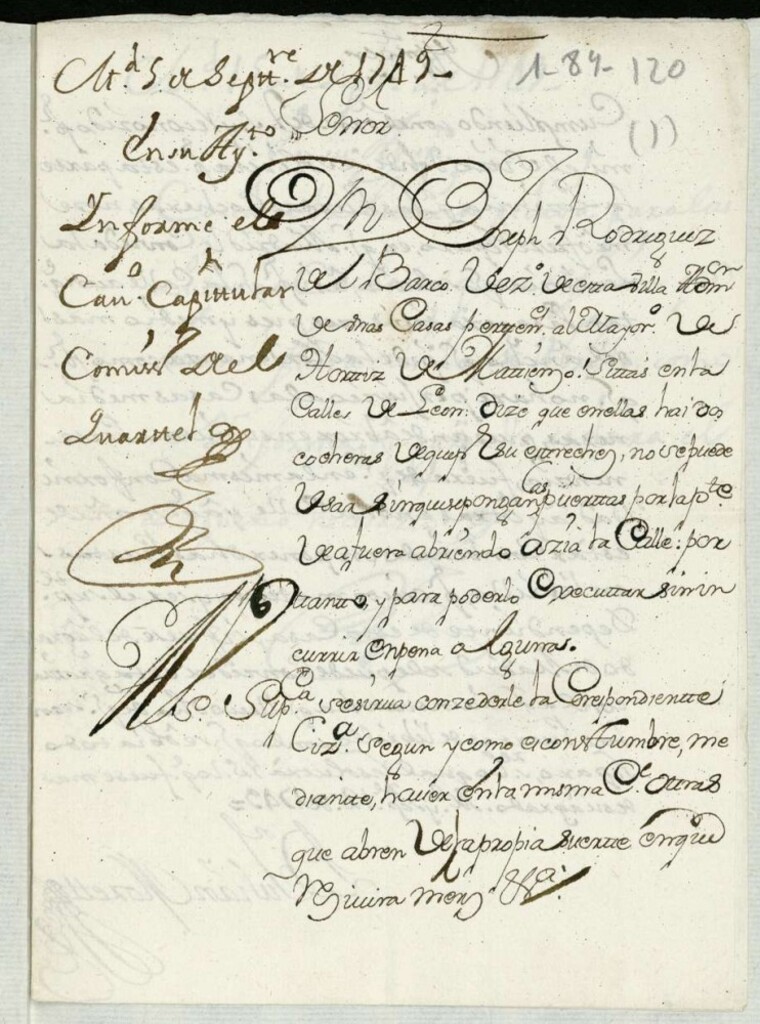 1-84-120
(1)
Md. 5 de Septtre. de 1749-
En su Ayto.
Informe el
Cavo. Capittular
Comisso. del
Quartel
Señor
Dn Joseph Rodriguez
del Barco Vezo. de esta Villa Admor.
de unas Casas pertten. al Mayoro. de
Horttiz de Mattienzo. Sittas en la
Calle, de Leon: dize que en ellas, hai dos
cocheras de que por su estrechez, no se puede
Usar sin que se pongan las puerttas por la pte.
de afuera abriendo azia la Calle: por
tanto, y para poderlo Executtar sin in
currir en pena alguna.
A V. S. Supca. se sirva conzederle la Correspondientte
Liza. segun y como es consttumbre, me
diantte, haver en la misma Ce. ottras
que abren de la propia suertte en que
Rezivira Merz. &a.